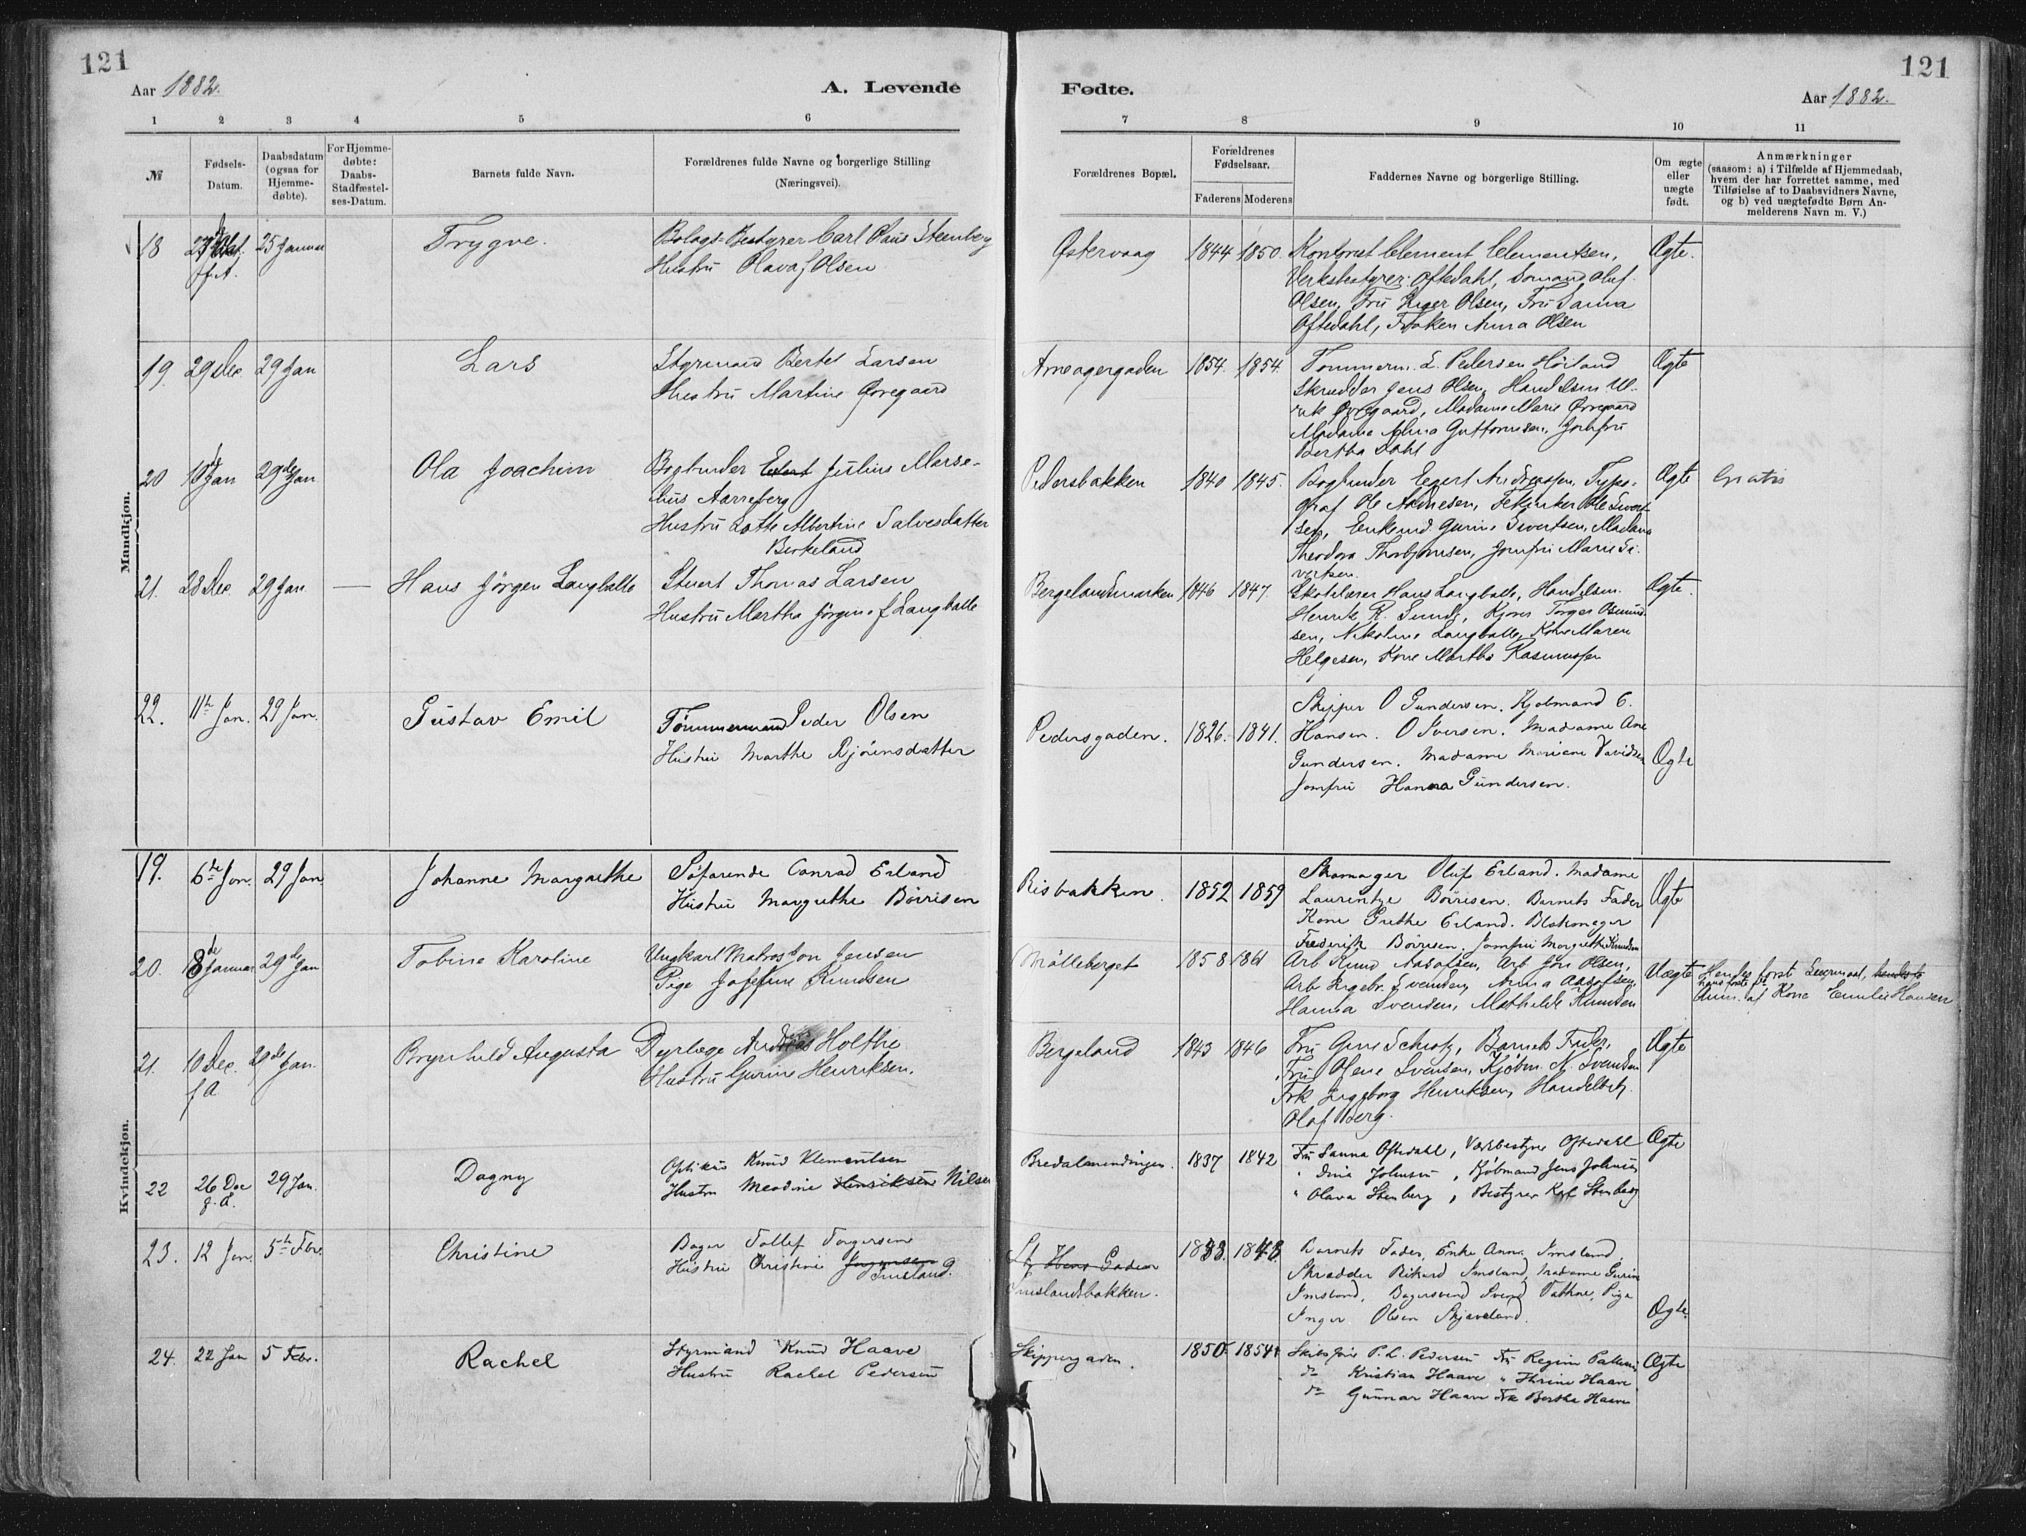 121
Aar 1882.
A. Levende
Fødte.
121
Aar 1882.
1 2 3 4 5 6 7 8 9 10 11
№
Fødsels-
Datum.
Daabsdatum
(ogsaa for
Hjemme-
døbte).
For Hjemme-
døbte:
Daabs-
Stadfæstel-
ses-Datum.
Barnets fulde Navn.
Forældrenes fulde Navne og borgerlige Stilling
(Næringsvei).
Forældrenes Bopæl.
Forældrenes
Fødselsaar.
Faderens Moderens
Faddernes Navne og borgerlige Stilling.
Om ægte
eller
uægte
født.
Anmærkninger
(saasom: a) i Tilfælde af Hjemmedaab,
hvem der har forrettet samme, med
Tilføielse af to Daabsvidners Navne,
og b) ved uægtefødte Børn An-
melderens Navn m. V.)
Mandkjøn.
18
f.A.
25 Januar
Trygve.
Bolags-Bestyrer Carl Paus Steenberg
Hustru Olava f Olsen
Østervaag
1844 1850.
Kontorist Clement Clementsen,
Verksbestyrer Oftedahl, Sömand Oluf
Olsen, Fru Inger Olsen, Fru Sanna
Oftedahl, Frøken Anna Olsen
Ægte.
19
29 Dec
29 Jan
Lars
Styrmand Bertel Larsen
Hustru Martine Ovregaard
Arneagergaden
1854. 1854.
Tømmerm. L. Pedersen Hörland
Skrædder Jens Olsen, Handelsm
Ovregaard, Madame Marie Ovregaard
Madame Anna Guttormsen, Jomfru
Bertha Dahl
Ægte
20
18de Jan
29de Jan
Ola Joachim
Bogbinder Julius Marse-
lius Aarreberg
Hustru Lotte Albertine Salvesdatter
Birkeland
Pedersbakken
1840 1845.
Bogbinder Egert Andreassen, Typo-
graf Ole Aadnesen, Ole Sivert-
sen, Enkemd. Gurine Sivertsen, Madame
Theodora Thorbjornsen, Jomfru Marie Si-
vertsen.
Ægte
Gratis
21.
28 Dec.
29 Jan
—
Hans Jörgen Langballe
Stuert Thomas Larsen
Hustru Martha Jörgine f Langballe
Bergelandsmarken
1846 1847.
Skolelærer Hans Langballe, Handelsm.
Henrik R. Sunde, Kjører Torger Osmund-
sen, Nikoline Langballe, Kone Maren
Helgesen, Kone Martha Rasmussen
Ægte.
22.
11te Jan.
29 Jan.
Gustav Emil
Tömmermand Peder Olsen
Hustru Marthe Bjørnsdatter
Pedersgaden.
1826. 1841.
Skipper O Gundersen. Kjøbmand C.
Hansen. O Iversen. Madame Ane
Gundersen. Madame Mariene Davidsen
Jomfru Hanna Gundersen.
Ægte
Kvindekjøn.
19.
6te Jan.
29 Jan
Johanne Margrethe
Söfarende Conrad Erland
Hustru Margrethe Börresen
Risbakken.
1852 1859
Skomager Oluf Erland. Madame
Laurentze Börresen. Barnets Fader
Kone Grethe Erland. Blokmager
Frederik Börresen. Jomfru Margrethe Knudsen
Ægte
20.
8de Januar
29de Jan
Tobine Karoline
Ungkarl Matros Jon Jensen
Pige Josefine Knudsen
Mölleberget
1858 1861
Arb Knud Aasolfsen, Arb Jon Olsen,
Arb Ingebr. Svendsen, Anna Aasolfsen,
Hanna Svendsen, Mathilde Knudsen
Uægte
Hendes første Leiermaal,
Anm. af Kone Emilie Hansen
21.
10 Dec.
f A
29de Jan.
Brynhild Augusta
Dyrlæge Andreas Holthe
Hustru Gurine Henriksen.
Bergeland
1843 1846
Fru Gine Schiotz, Barnets Fader,
Fru Olene Svensen, Kjøbm. N. Svendsen
Frk Ingeborg Henriksen, Handelsb.
Olaf Berg.
Ægte
22
26 Dec
f. A.
29 Jan.
Dagny
Optikus Knud Klementsen
Hustru Meadine Henriksen Nilsen
Bredalmendingen.
1837 1842
Fru Sanna Oftedahl, Værkbestyrer Oftedahl
" Dina Johnsen, Kjøbmand Jens Johnsen
" Olava Stenberg, Bestyrer Karl Stenberg
Ægte
23.
12 Jan.
5te Febr.
Christine
Bager Tollef Torgersen
Hustru Christine Jørgensen
Imsland.
St Hans Gaden
Imslandsbakken.
1838. 1843.
Barnets Fader, Enke Anna Imsland,
Skrædder Rikard Imsland, Madame Gurine
Imsland, Bagersvend Svend Tathne, Pige
Inger Olsen Skjæveland.
Ægte
24.
22 Jan
5 Febr.
Rachel
Styrmand Knud Haave
Hustru Rachel Pedersen
Skippergaden.
1850. 1854.
Skibsfører P. L. Pedersen Fru Regine
do Kristian Haave " Thrine Haave
do Gunnar Haave Frk Bertha Haave
Ægte